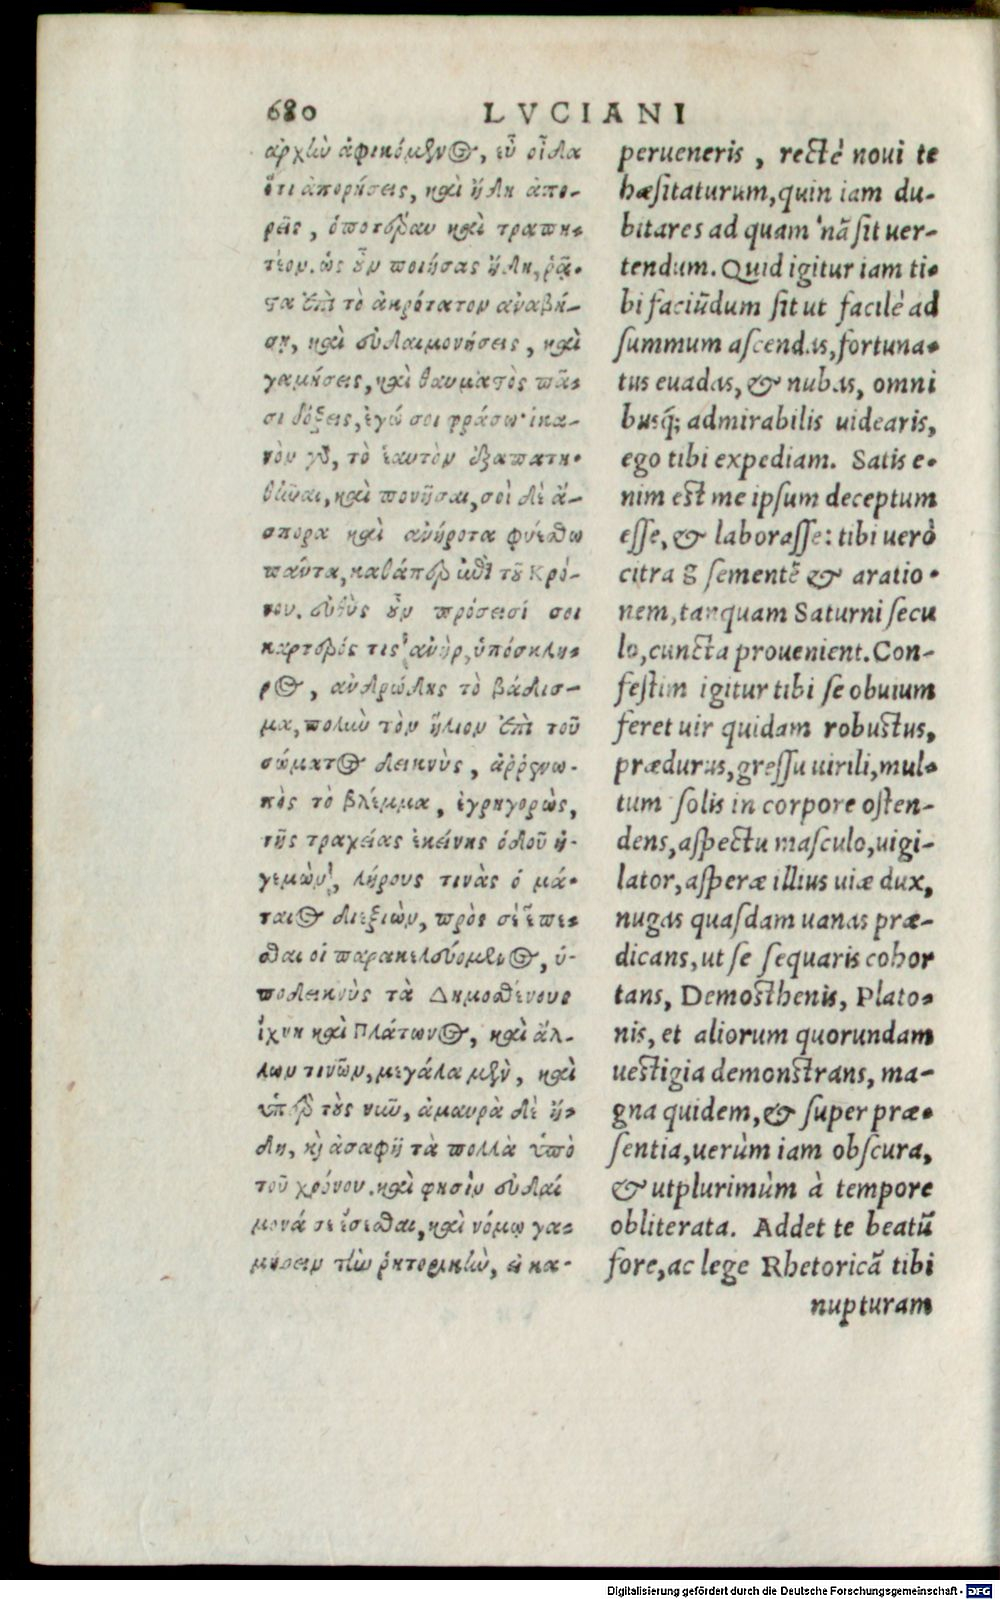 680 LVCIANI
ἀρχὴν ἀφικόμενος, εὖ οἶδα
ὅτι ἀπορήσεις, καὶ ἤδη ἀπο-
ρεῖς, ὁποτέραν καὶ τραπη-
τέον. ὡς οὖν ποιήσας ἤδη, ῥᾷ-
στα ἐπὶ τὸ ἀκρότατον ἀναβή-
σῃ, καὶ εὐδαιμονήσεις, καὶ
γαμήσεις, καὶ θαυμαστὸς πᾶ-
σι δόξεις, ἐγώ σοι φράσω· ἱκα-
νὸν γὰρ, τὸ ἑαυτὸν ἐξαπατη-
θῆναι, καὶ πονῆσαι, σοὶ δὲ ἄ-
σπορα καὶ ἀνήροτα φυέσθω
πάντα, καθάπερ ἐπὶ τοῦ Κρό-
νου. εὐθὺς οὖν πρόσεισί σοι
καρτερός τις ἀνὴρ, ὑπόσκλη-
ρος, ἀνδρώδης τὸ βάδισ-
μα, πολὺν τὸν ἥλιον ἐπὶ τοῦ
σώματος δεικνὺς, ἀῤῥενω-
πὸς τὸ βλέμμα, ἐγρηγορὼς,
τῆς τραχείας ἐκείνης ὁδοῦ ἡ-
γεμὼν, λήρους τινὰς ὁ μά-
ταιος διεξιὼν, πρὸς σὲ ἕπε-
σθαι οἱ παρακελευόμενος, ὑ-
ποδεικνὺς τὰ Δημοσθένους
ἴχνη καὶ Πλάτωνος, καὶ ἄλ-
λων τινῶν, μεγάλα μὲν, καὶ
ὑπὲρ τοὺς νῦν, ἀμαυρὰ δὲ ἤ-
δη, κὶ ἀσαφῆ τὰ πολλὰ ὑπὸ
τοῦ χρόνου. καὶ φησὶν εὐδαί
μονά σε ἔσεσθαι, καὶ νόμῳ γα-
μήσειν τὴν ῥητορικὴν, εἰ κα-
perueneris, rectè noui te
hæsitaturum, quin iam du-
bitares ad quam nã sit uer-
tendum. Quid igitur iam ti-
bi faciũdum sit ut facilè ad
summum ascendas, fortuna-
tus euadas, & nubas, omni
busq́; admirabilis uidearis,
ego tibi expediam. Satis e-
nim est me ipsum deceptum
esse, & laborasse: tibi uerò
citra & sementẽ & aratio-
nem, tanquam Saturni secu
lo, cuncta prouenient. Con-
festim igitur tibi se obuium
feret uir quidam robustus,
prædurus, gressu uirili, mul-
tum solis in corpore osten-
dens, aspectu masculo, uigi-
lator, asperæ illius uiæ dux,
nugas quasdam uanas præ-
dicans, ut se sequaris cohor
tans, Demosthenis, Plato-
nis, et aliorum quorundam
uestigia demonstrans, ma-
gna quidem, & super præ-
sentia, uerùm iam obscura,
& utplurimùm à tempore
obliterata. Addet te beatũ
fore, ac lege Rhetoricã tibi
nupturam
Digitalisierung gefördert durch die Deutsche Forschungsgemeinschaft - DFG